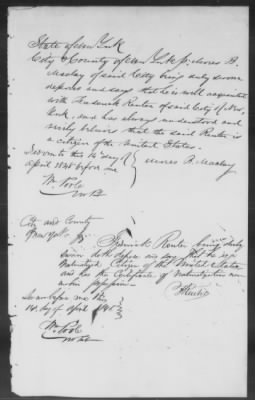 State of New York
City & County of New York ss: Moses B.
Maclay of said City being duly sworn
deposes and says that he is well acquainted
with Frederick Reuter of said City of New
York, and has always understood and
verily believes that the said Reuter is
a citizen of the United States.
Sworn to this 14 day of
April 1848 before me
Moses B. Maclay
Wm. Poole
City and County
of New York ss Frederick Reuter being duly
sworn doth depose and say that he is a
Naturalized Citizen of the United States
and has the Certificate of naturalization now
in his possession
Sworn before me this
14 day of April 1848
Wm. Poole